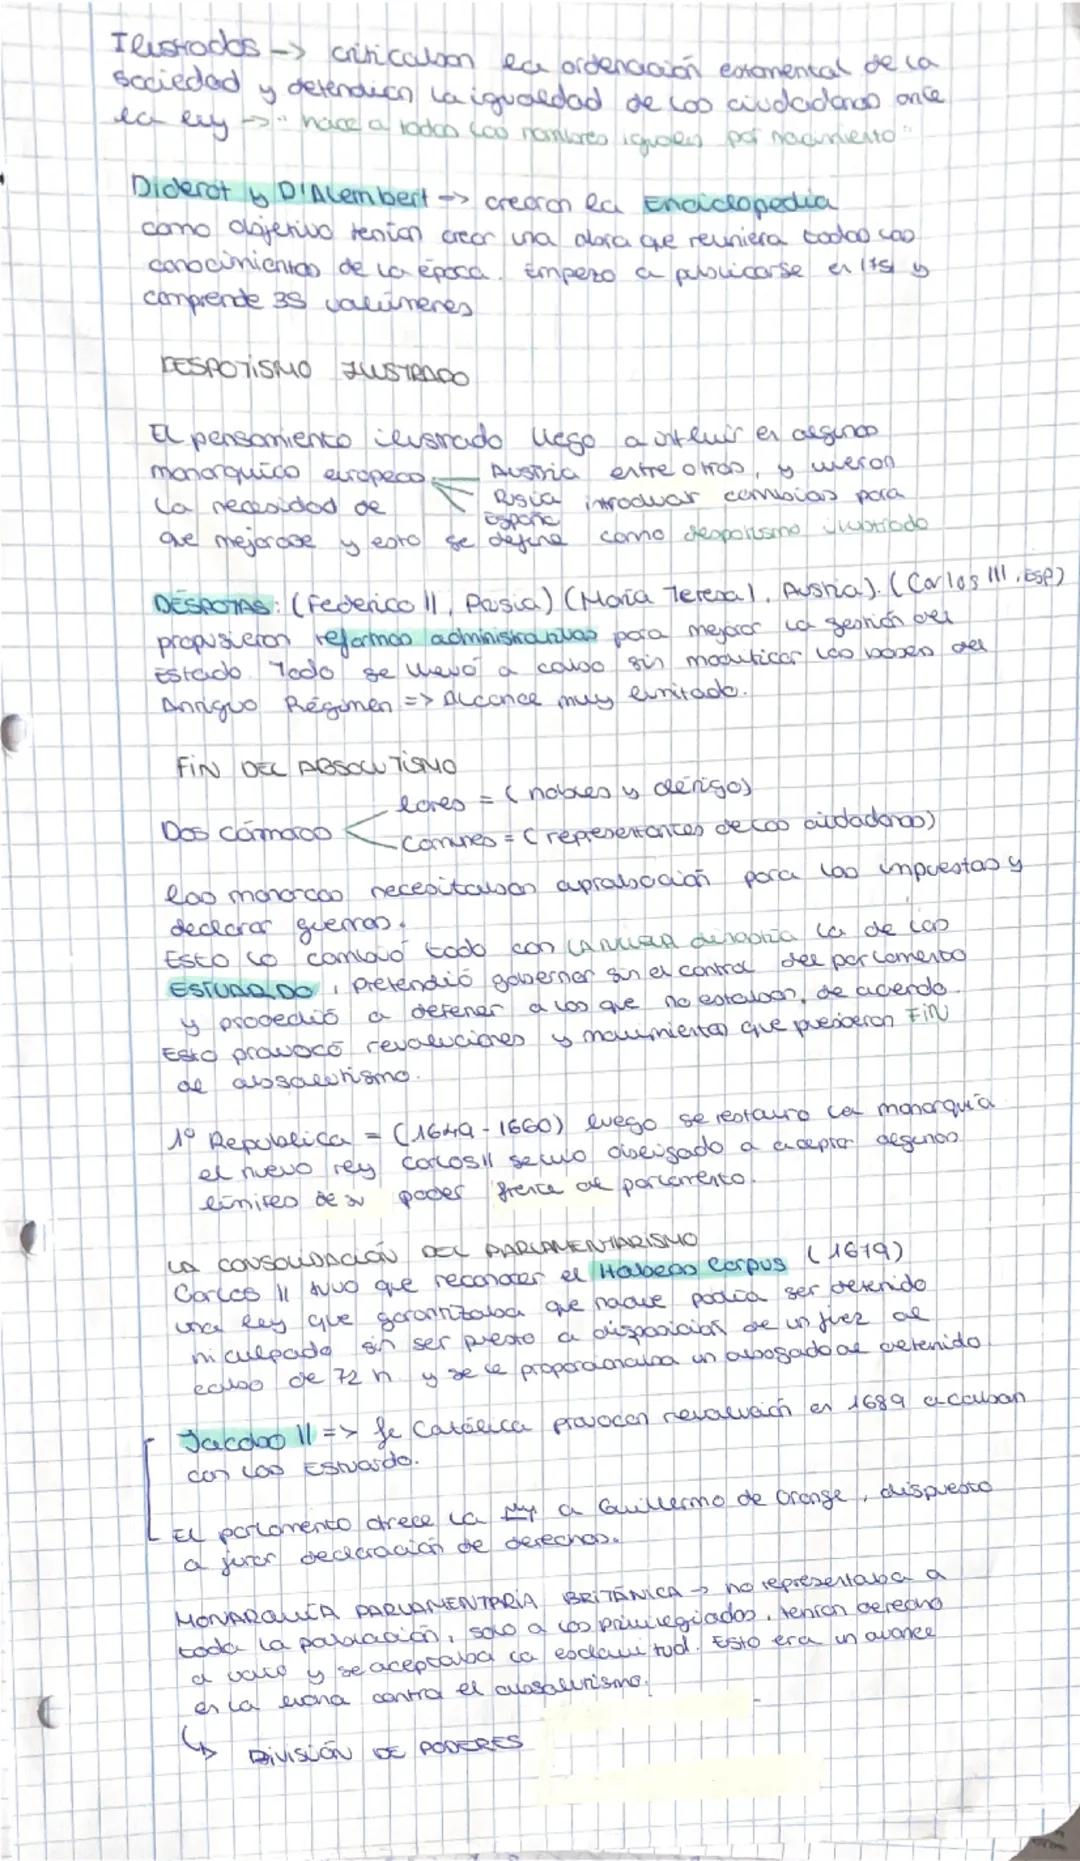 Ilustrados -> criticaban la ordenación estamental de la
sociedad y defendían la igualdad de los ciudadanos ante
la ley -> "nace a todos los hombres iguales por nacimiento"
Diderot y D'Alembert -> crearon la Enciclopedia
como objetivo tenían crear una obra que reuniera todos los
conocimientos de la época. Empezo a publicarse en 1751 y
comprende 35 volúmenes
DESPOTISMO ILUSTRADO
El pensamiento ilustrado llego a influir en algunos
monarquico europeos Austria entre otros, y vieron
la necesidad de Rusia introducir cambios para
España
que mejorase y esto se define como despotismo ilustrado
DÉSPOTAS: (Federico II, Prusia) (María Teresa I, Austria). (Carlos III, ESP)
propusieron reformas administrativas para mejorar la gestión del
Estado. Todo se llevó a cabo sin modificar las bases del
Antiguo Régimen => Alcance muy limitado.
FIN DEL ABSOLUTISMO
lores = (nobles y clérigo)
Dos cámaras
comunes = (representantes de los ciudadanos)
los monarcas necesitaban aprobación para los impuestos y
declarar guerras.
Esto lo cambió todo con LA NUEVA dinastía la de los
ESTUARDO, pretendió gobernar sin el control del parlamento
y procedió a detener a los que no estaban de acuerdo.
Esto provocó revoluciones y movimientos que pusieron FIN
al absolutismo.
1º República = (1649 - 1660) luego se restauro la monarquía
el nuevo rey Carlos II se vio obligado a aceptar algunos
límites de su poder frente al parlamento.
LA CONSOLIDACIÓN DEL PARLAMENTARISMO
Carlos II tuvo que reconocer el Habeas Corpus (1679)
una ley que garantizaba que nadie podía ser detenido
ni culpado sin ser puesto a disposición de un juez al
cabo de 72 h y se le proporcionaba un abogado al detenido
Jacobo II => fe Católica provocan revolución en 1689 acaban
con los Estuardo.
El parlamento ofrece la a Guillermo de Orange, dispuesto
a jurar declaración de derechos.
MONARQUÍA PARLAMENTARIA BRITÁNICA -> no representaba a
toda la población, solo a los privilegiados, tenían derecho
a voto y se aceptaba la esclavitud. Esto era un avance
en la lucha contra el absolutismo.
↳ DIVISIÓN DE PODERES